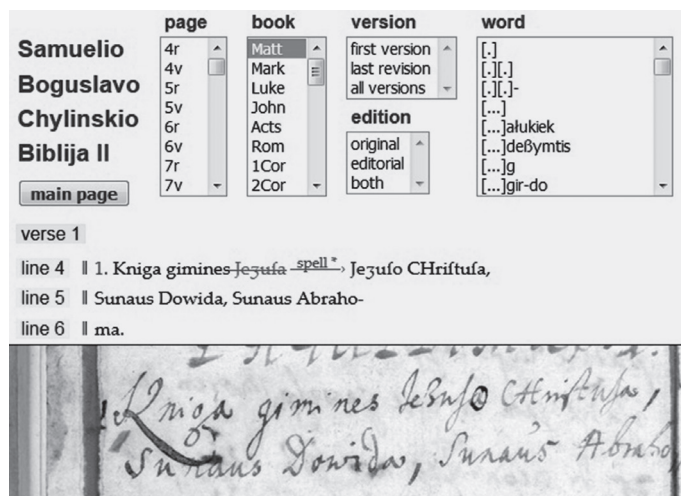 Samuelio
Boguslavo
Chylinskio
Biblija II
main page
page
4r
4v
5r
5v
6r
6v
7r
7v
book
Matt
Mark
Luke
John
Acts
Rom
1Cor
2Cor
version
first version
last revision
all versions
edition
original
editorial
both
word
[.]
[.][.]
[.][.]-
[...]
[...]ałukiek
[...]deßymtis
[...]g
[...]gir-do
verse 1
line 4 ‖ 1. Kniga gimines Jeʒuſa spell * › Jeʒuſo CHriſtuſa,
line 5 ‖ Sunaus Dowida, Sunaus Abraho-
line 6 ‖ ma.
Kniga gimines Jeʒuſo CHriſtuſa,
Sunaus Dowida, Sunaus Abraho,